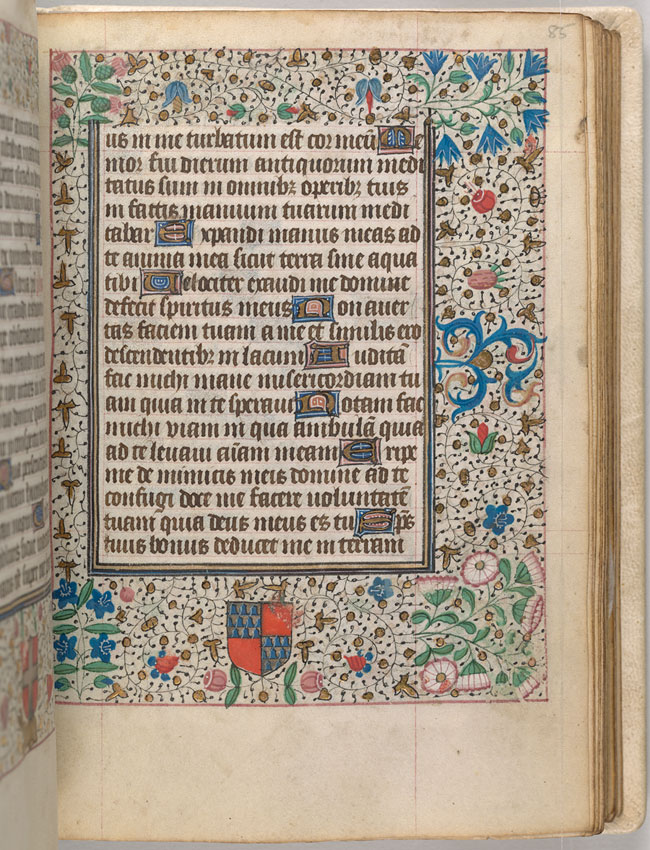 85
us in me turbatum est cor meū Me
mor fui dierum antiquorum medi
tatus sum in omnibꝫ operibꝫ tuis
in factis manuum tuarum medi
tabar Expandi manus meas ad
te anima mea sicut terra sine aqua
tibi Uelociter exaudi me domine
defecit spiritus meus Non auer
tas faciem tuam a me et similis ero
descendentibꝫ in lacum Auditā
fac michi mane misericordiam tu
am quia in te speraui Notam fac
michi viam in qua ambulā quia
ad te leuaui aīam meam Eripe
me de inimicis meis domine ad te
confugi doce me facere uoluntatē
tuam quia deus meus es tu Sp̄s
tuus bonus deducet me in terram